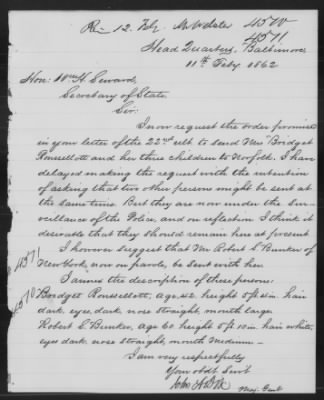 Rec 12. Feby. Mr Webster 4570
4571
Head Quarters, Baltimore
11th Feby. 1862
Hon: Wm H. Seward,
Secretary of State.
Sir:
I now request the order promised
in your letter of the 22nd ult to send Mrs Bridget
Roussellott and her three children to Norfolk. I have
delayed making the request with the intention
of asking that two other persons might be sent at
the same time. But they are now under the sur-
veillance of the Police, and on reflection I think it
desirable that they should remain here at present
I however suggest that Mr Robert S. Bunker of
4571
New York, now on parole, be sent with her.
I annex the description of these persons:
4570
Bridget Roussellott, age 42. height 5 ft 2 in. hair
dark, eyes, dark, nose straight, mouth large.
Robert S. Bunker, age 60 height 5 ft 10 in. hair white,
eyes dark nose straight, mouth Medium.—
I am very respectfully
Your obdt Servt
John A. Dix
Maj. Genl